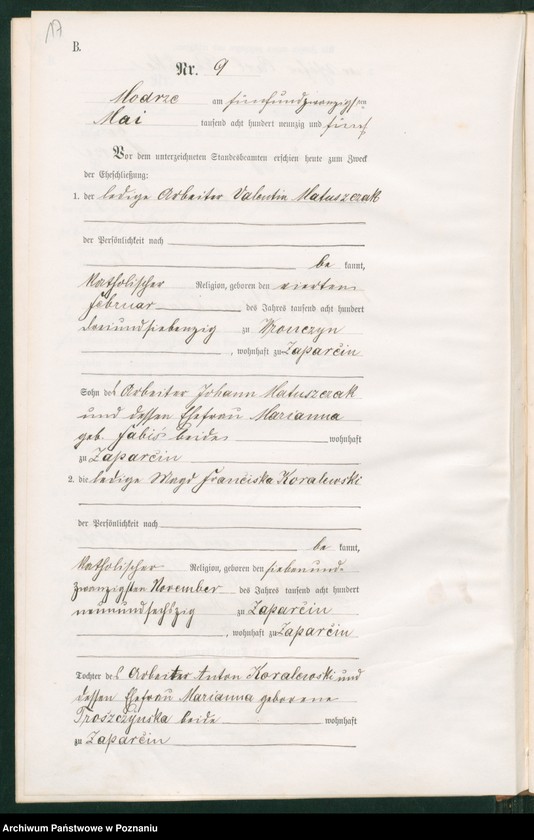 17
B.
Nr. 9
Modrze am fünfundzwanzigsten
Mai tausend acht hundert neunzig und fünf
Vor dem unterzeichneten Standesbeamten erschien heute zum Zweck
der Eheschließung:
1. der ledige Arbeiter Valentin Matuszczak
der Persönlichkeit nach
be kannt,
katholischer Religion, geboren den vierten
Februar des Jahres tausend acht hundert
dreiundsiebenzig zu
, wohnhaft zu Zaparcin
Sohn des Arbeiter Johann Matuszczak
und dessen Ehefrau Marianna
geb. Fabiś beide wohnhaft
zu Zaparcin
2. die ledige Magd Franciska Koralewski
der Persönlichkeit nach
be kannt,
katholischer Religion, geboren den siebenund-
zwanzigsten November des Jahres tausend acht hundert
neunundsechszig zu Zaparcin
, wohnhaft zu Zaparcin
Tochter des Arbeiter Anton Koralewski und
dessen Ehefrau Marianna geborene
Troszczynska beide wohnhaft
zu Zaparcin
Archiwum Państwowe w Poznaniu